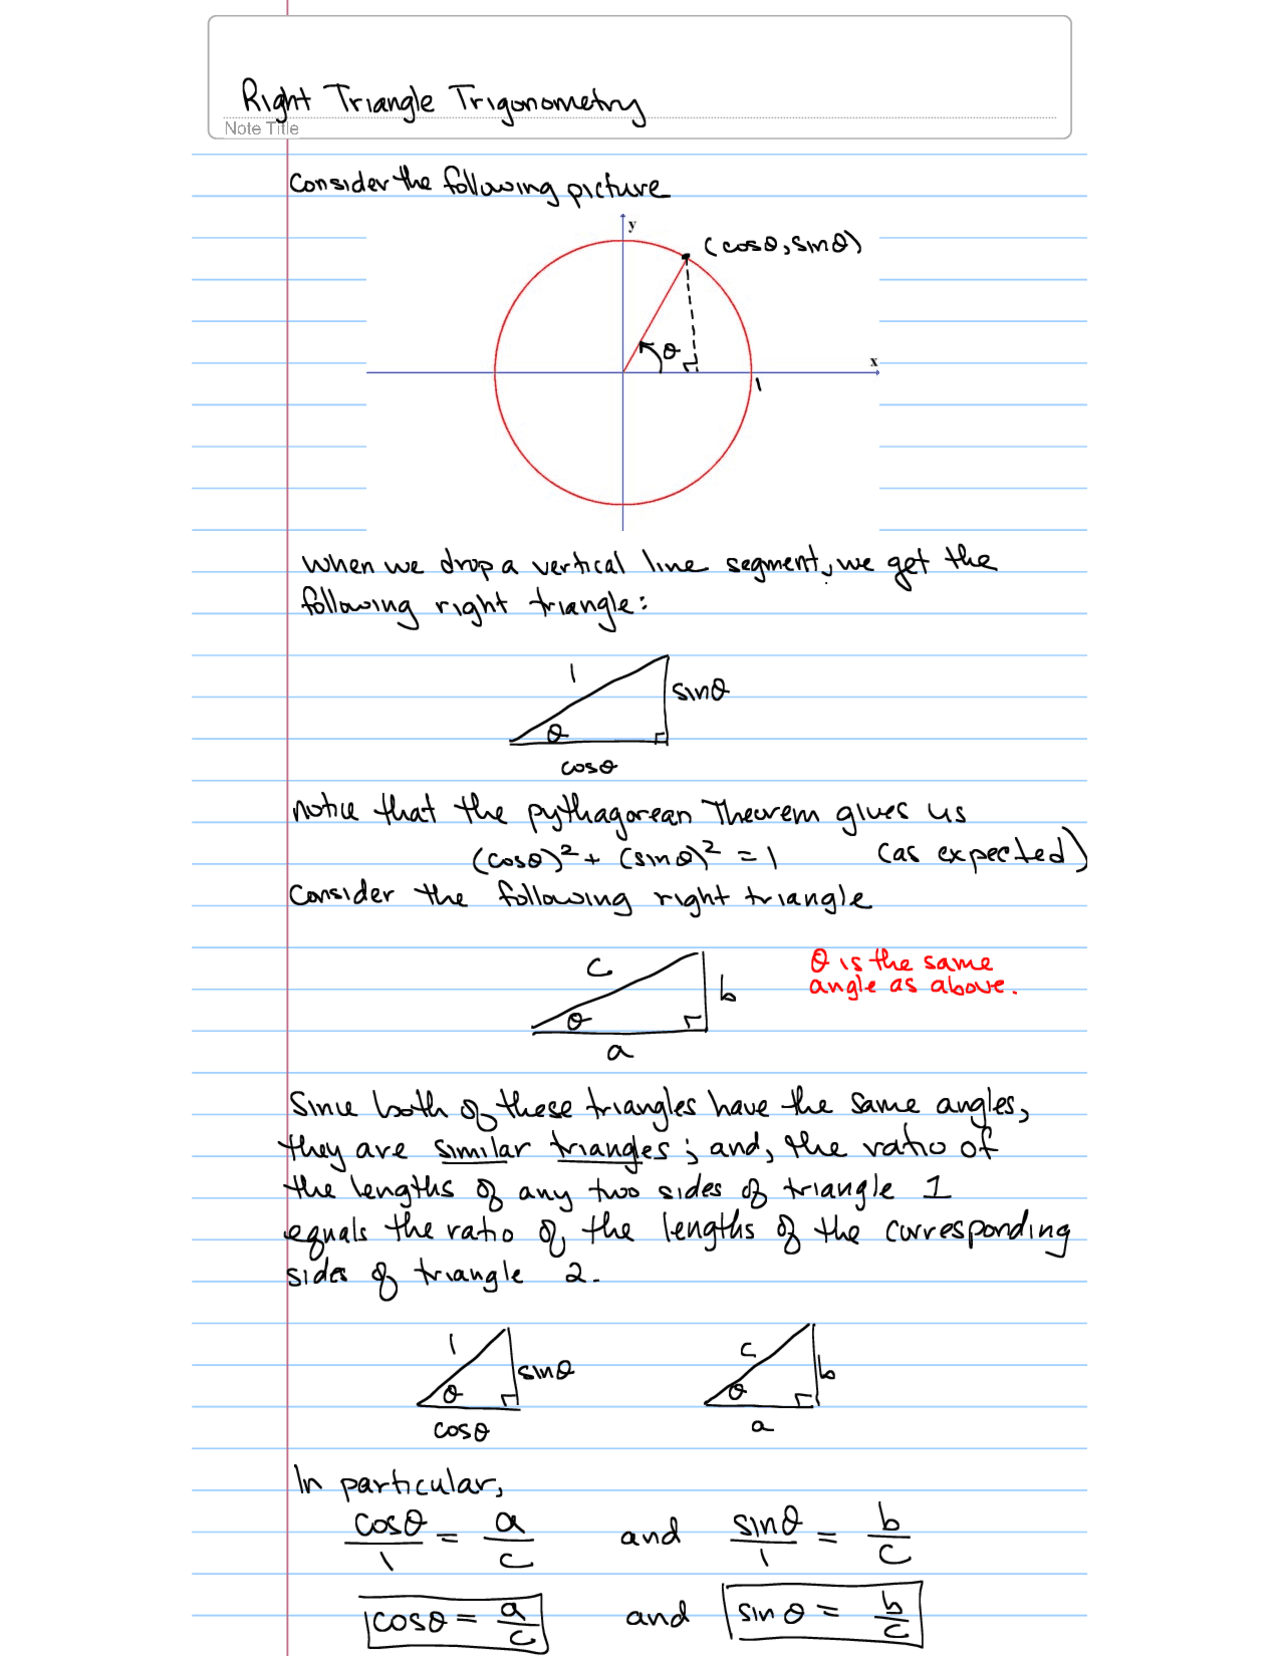 Right Triangle Trigonometry
Note Title
Consider the following picture
y
(cosθ, sinθ)
θ
x
1
When we drop a vertical line segment, we get the
following right triangle:
1
sinθ
θ
cosθ
notice that the pythagorean Theorem gives us
(cosθ)² + (sinθ)² = 1 (as expected)
Consider the following right triangle
c
b
θ
a
θ is the same
angle as above.
Since both of these triangles have the same angles,
they are similar triangles; and, the ratio of
the lengths of any two sides of triangle 1
equals the ratio of the lengths of the corresponding
sides of triangle 2.
1
sinθ
θ
cosθ
c
b
θ
a
In particular,
cosθ/1 = a/c and sinθ/1 = b/c
cosθ = a/c and sinθ = b/c